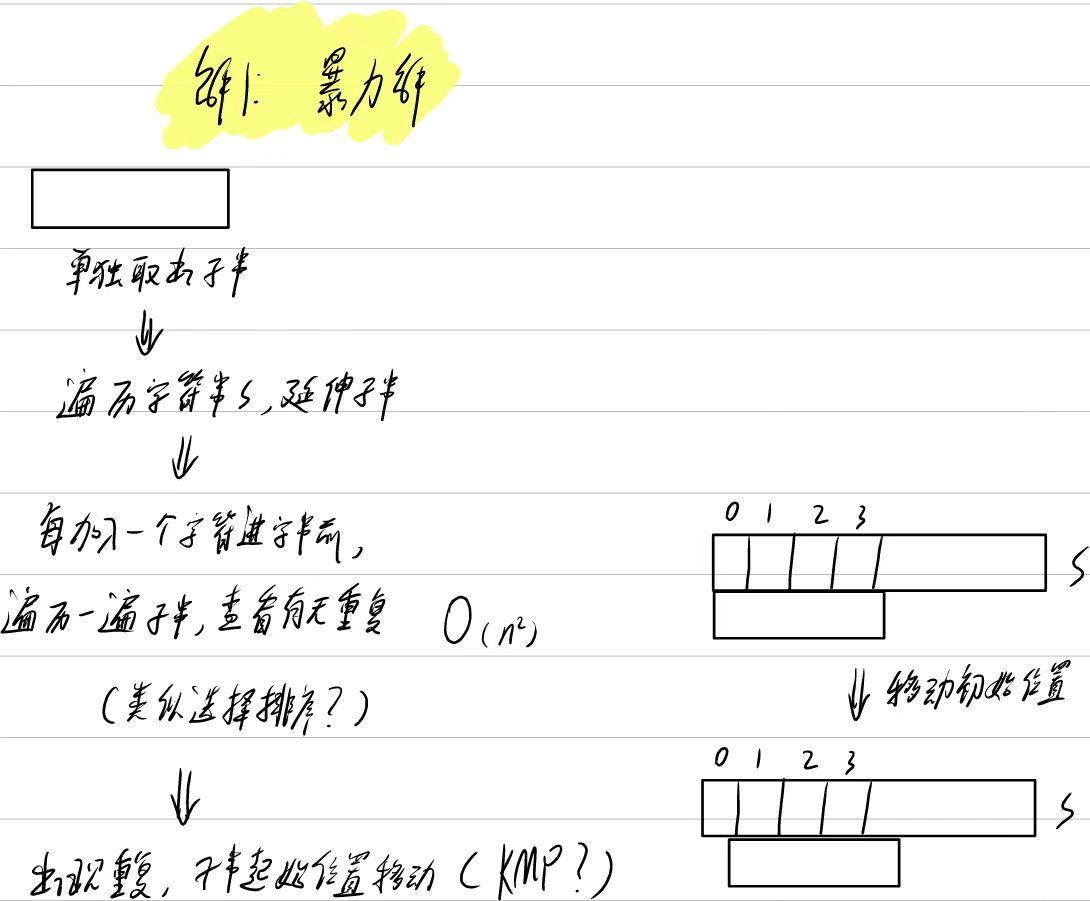 解1: 暴力解
单独取出子串
遍历字符串S,延伸子串
每加入一个字符进字串前,
遍历一遍子串,查看有无重复 O(n²)
(类似选择排序?)
出现重复,子串起始位置移动(KMP?)
0 1 2 3
S
移动初始位置
0 1 2 3
S